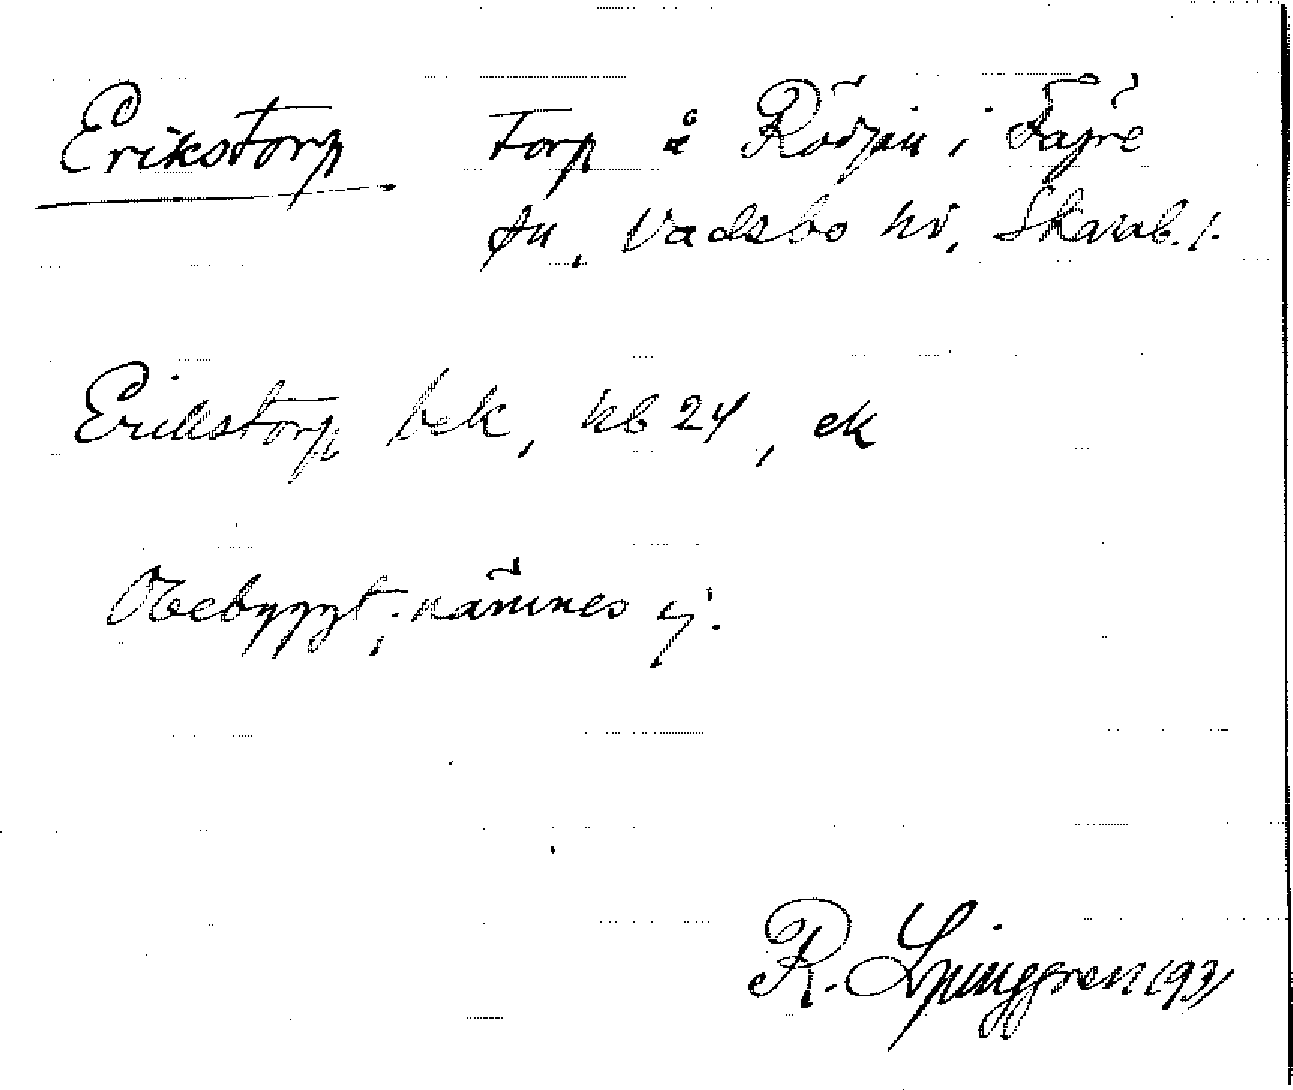 Erikstorp Torp å Rödjan i Fägre
sn, Vadsbo hd, Skarab. l.
Erikstorp bek, kb 24, ek
Obebyggt; nämnes ej.
R. Ljunggren 1931